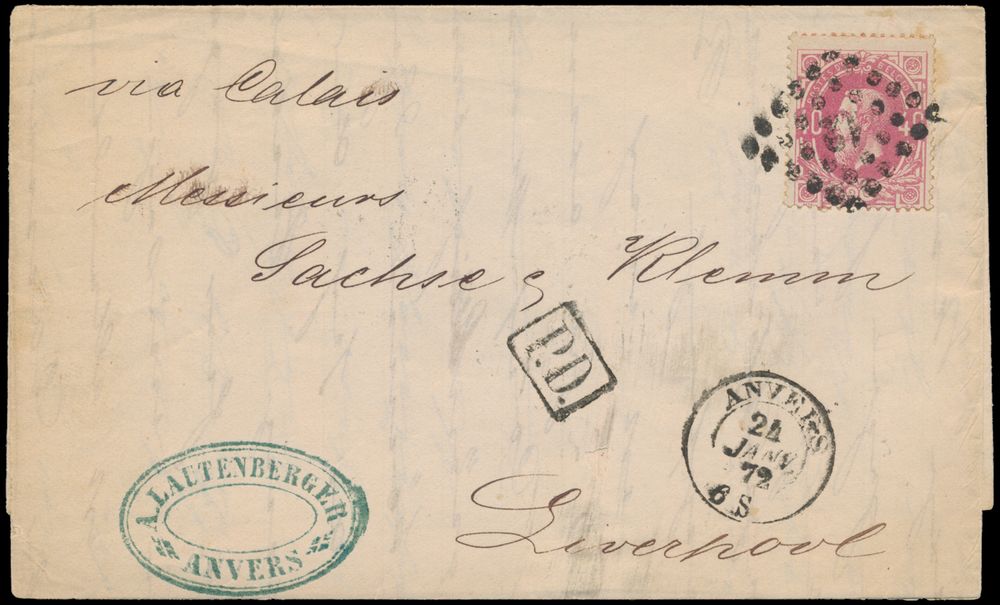 via Calais
Messieurs
Sachse & Klemm
P.D.
ANVERS
24
JANV
72
6 S
A. LAUTENBERGER
ANVERS
Liverpool